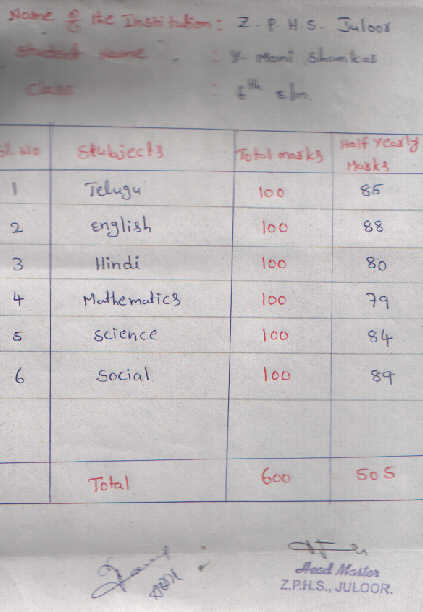 Name of the Institution: Z. P. H. S. Juloor
Student Name : Y. Mani Shankar
Class : 6th E/m
Sl. No Stubjects Total marks Half Yearly Marks
1 Telugu 100 85
2 English 100 88
3 Hindi 100 80
4 Mathematics 100 79
5 Science 100 84
6 Social 100 89
Total 600 505
Head Master
Z.P.H.S., JULOOR.